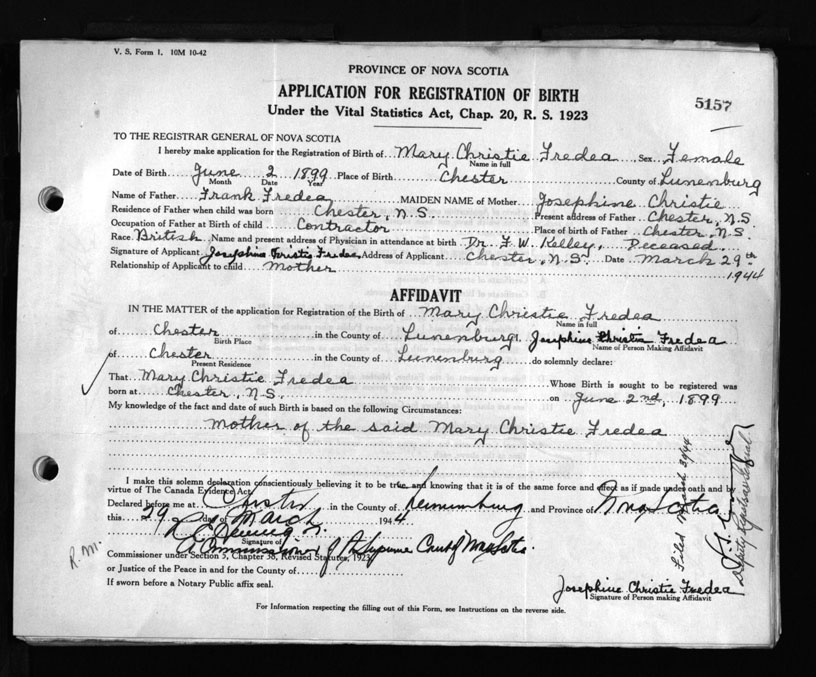 V. S. Form 1. 10M 10-42
PROVINCE OF NOVA SCOTIA
APPLICATION FOR REGISTRATION OF BIRTH
5157
Under the Vital Statistics Act, Chap. 20, R. S. 1923
TO THE REGISTRAR GENERAL OF NOVA SCOTIA
I hereby make application for the Registration of Birth of Mary Christie Fredea Sex Female
Name in full
Date of Birth June 2 1899 Place of Birth Chester County of Lunenburg
Month Date Year
Name of Father Frank Fredea MAIDEN NAME of Mother Josephine Christie
Residence of Father when child was born Chester, N.S. Present address of Father Chester, N.S
Occupation of Father at Birth of child Contractor Place of birth of Father Chester, N.S.
Race British Name and present address of Physician in attendance at birth Dr. F. W. Kelley, Deceased.
Signature of Applicant Josephine Christie Fredea Address of Applicant Chester, N.S. Date March 29th
Relationship of Applicant to child Mother 1944
AFFIDAVIT
IN THE MATTER of the application for Registration of the Birth of Mary Christie Fredea
Name in full
of Chester in the County of Lunenburg, Josephine Christie Fredea
Birth Place Name of Person Making Affidavit
of Chester in the County of Lunenburg do solemnly declare:
Present Residence
That Mary Christie Fredea Whose Birth is sought to be registered was
born at Chester, N.S. on June 2nd, 1899
My knowledge of the fact and date of such Birth is based on the following Circumstances:
Mother of the said Mary Christie Fredea
I make this solemn declaration conscientiously believing it to be true and knowing that it is of the same force and effect as if made under oath and by
virtue of The Canada Evidence Act.
Declared before me at Chester in the County of Lunenburg and Province of Nova Scotia
this 29 day of March 1944
Signature of
A Commissioner of the Supreme Court of Nova Scotia.
Commissioner under Section 5, Chapter 38, Revised Statutes, 1923
or Justice of the Peace in and for the County of
If sworn before a Notary Public affix seal.
R.M.
Josephine Christie Fredea
Signature of Person making Affidavit
For Information respecting the filling out of this Form, see Instructions on the reverse side.
Filed March 30/44
Deputy Registrar General